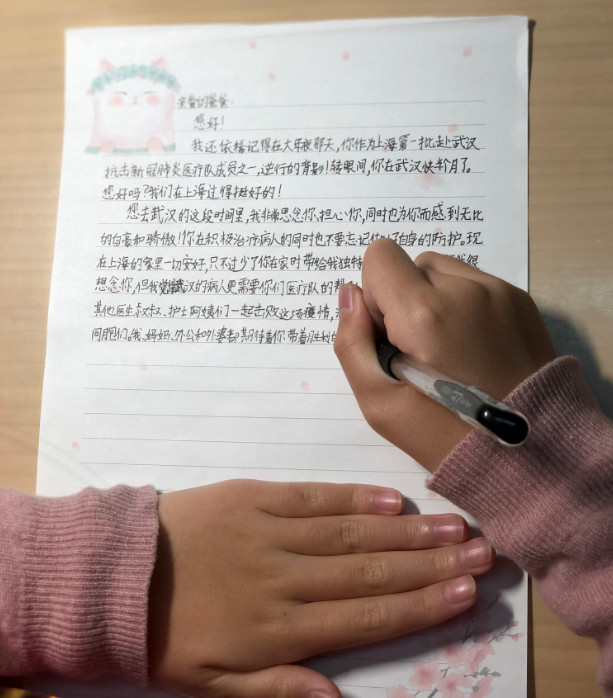 亲爱的爸爸:
您好!
我还依稀记得在大年夜那天,你作为上海第一批赴武汉
抗击新冠肺炎医疗队成员之一,逆行的背影!转眼间,你在武汉快半个月了。
您好吗?我们在上海过得挺好的!
您去武汉的这段时间里,我非常思念你、担心你,同时也为你而感到无比
的自豪和骄傲!你在积极治疗病人的同时也不要忘记做好自身的防护。现
在上海的家里一切安好,只不过少了你在家时带给我独特 我很
想念你,但我觉得武汉的病人更需要你们医疗队的帮
其他医生叔叔、护士阿姨们一起击败这场疫情,
同胞们。我、妈妈、外公和外婆都期待着你带着胜利的